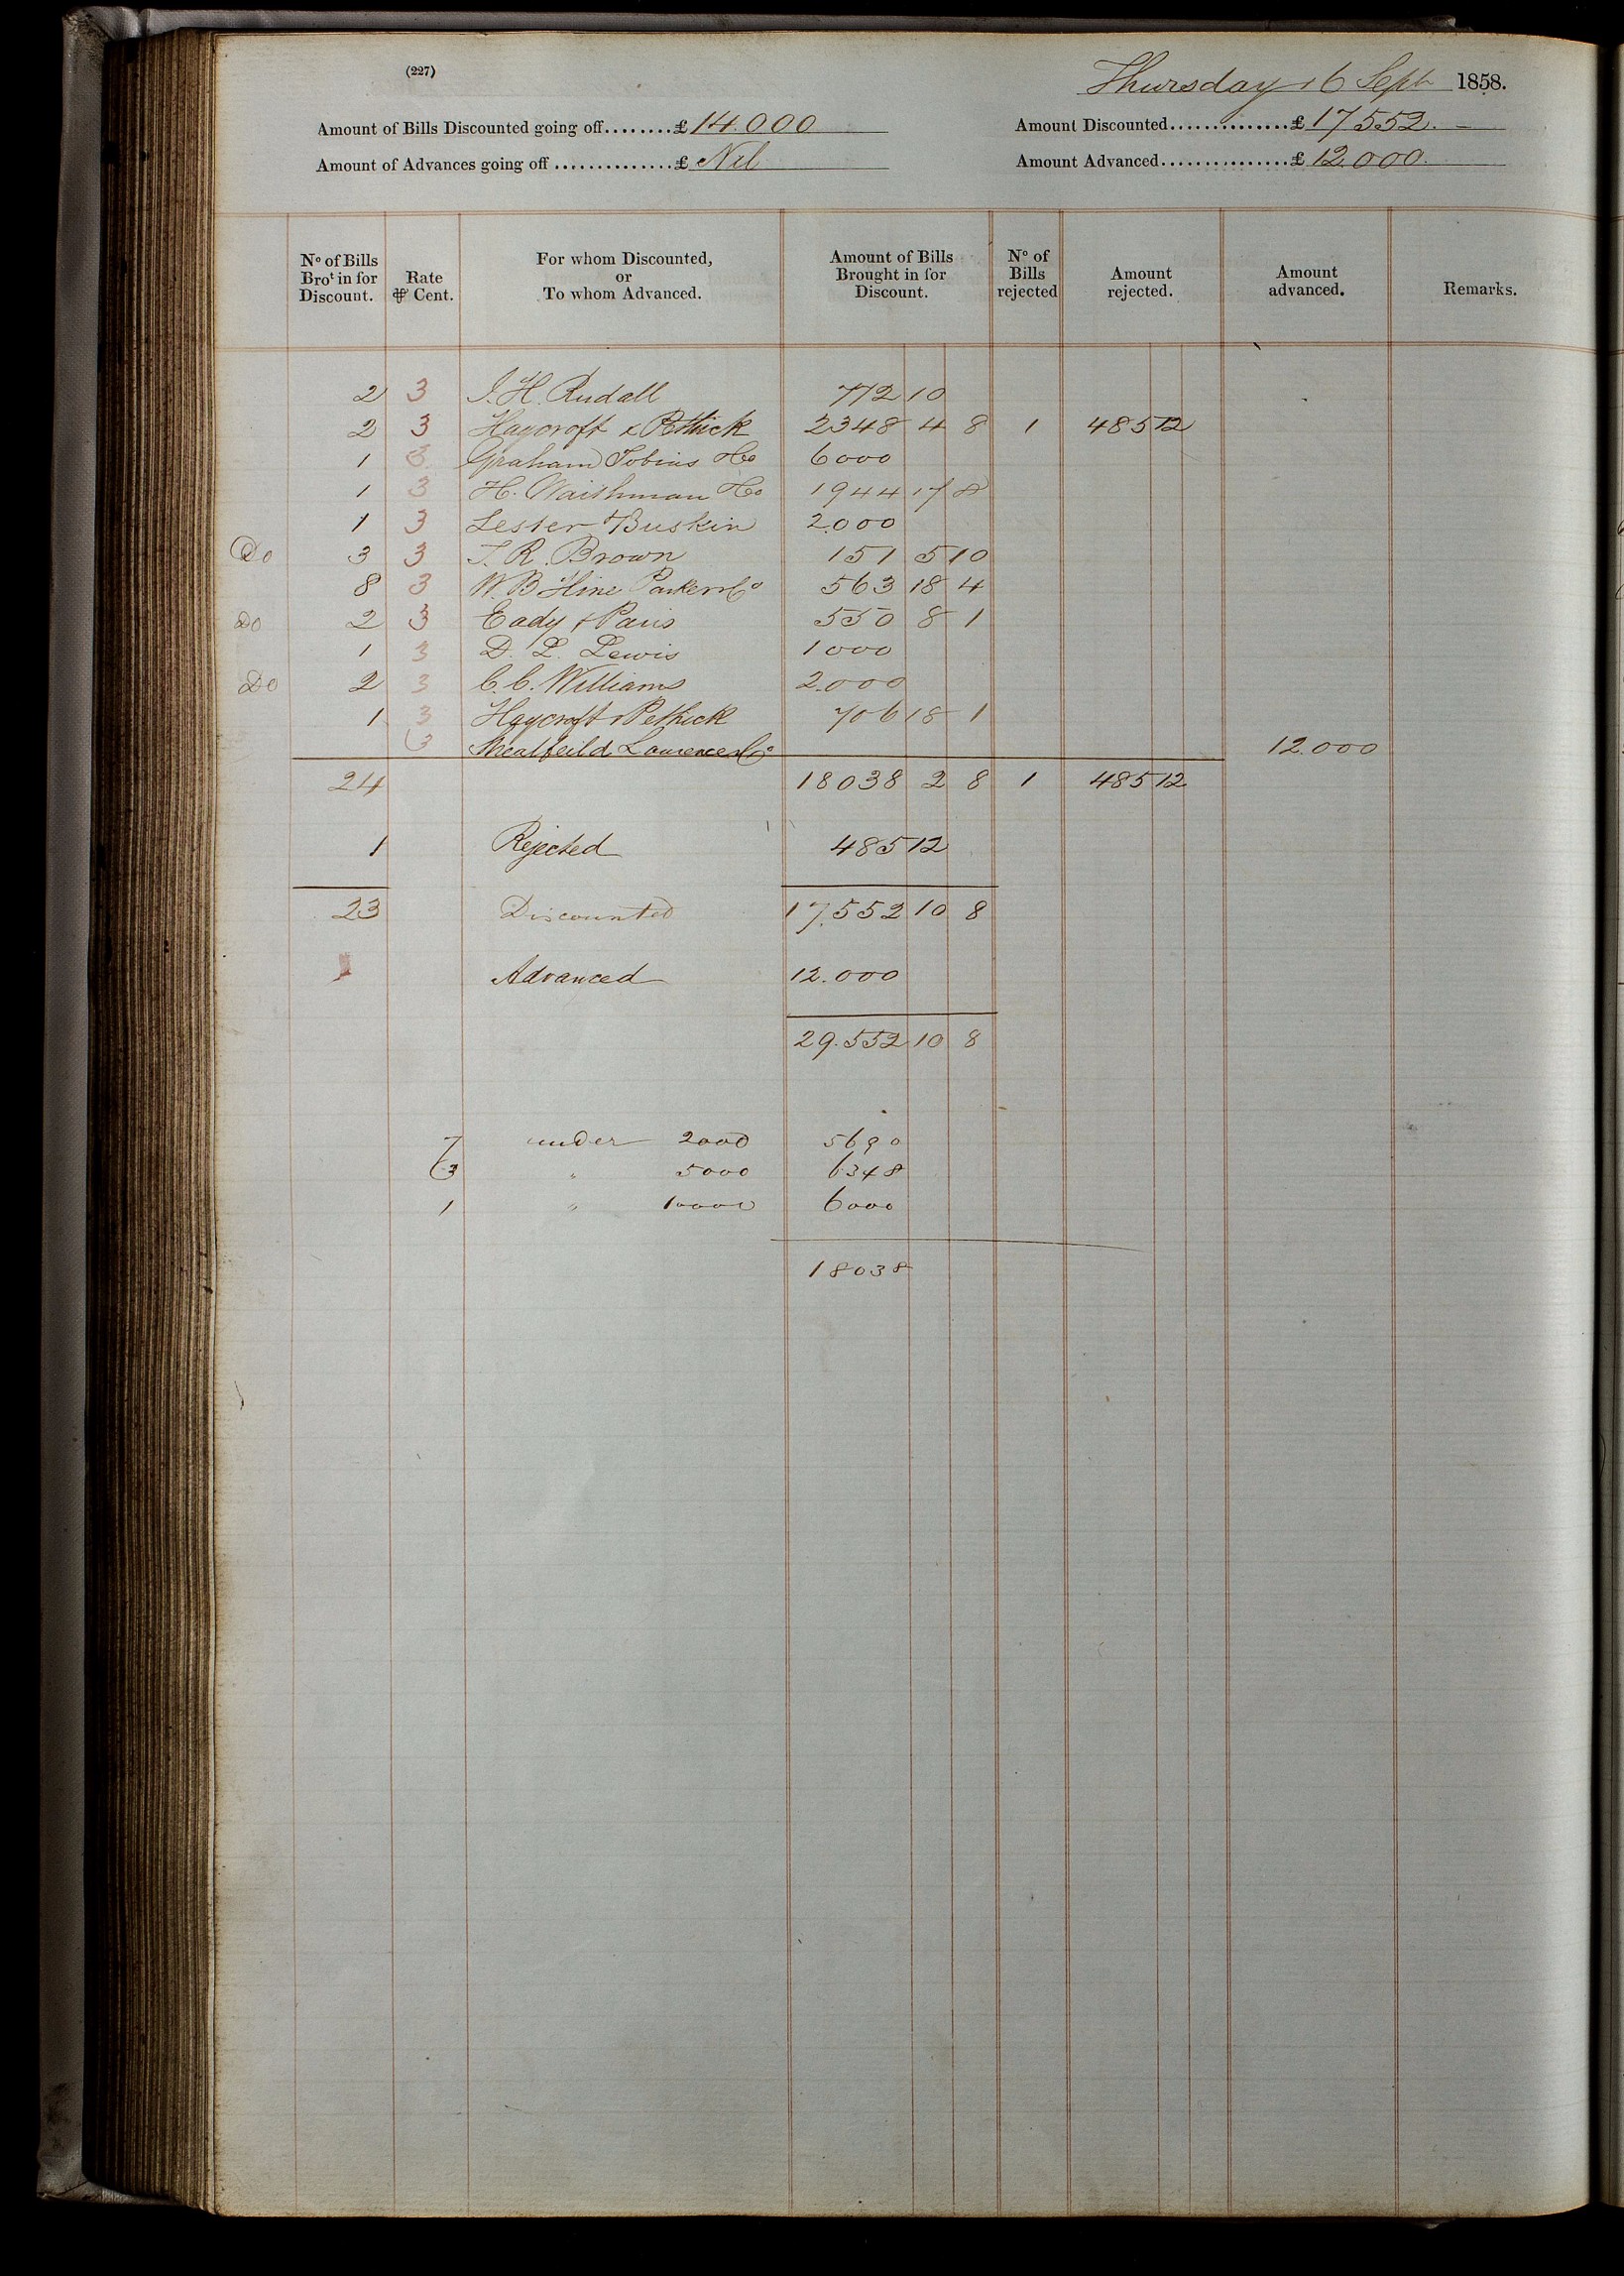 (227)
Thursday 16 Sept 1858.
Amount of Bills Discounted going off........£ 14.000
Amount Discounted..............£ 17552. —
Amount of Advances going off..............£ Nil
Amount Advanced...............£ 12.000.
No of Bills Brot in for Discount. Rate ⅌ Cent. For whom Discounted, or To whom Advanced. Amount of Bills Brought in for Discount. No of Bills rejected Amount rejected. Amount advanced. Remarks.
2 3 J. H. Rudall 772 10
2 3 Haycroft & Pethick 2348 4 8 1 485 12
1 3 Graham Tobias & Co 6000
1 3 H. Waithman & Co 1944 17 8
1 3 Lester & Buskin 2.000
Do 3 3 T. R. Brown 151 5 10
8 3 W. B. Hine Parker & Co 563 18 4
Do 2 3 Eady & Paris 550 8 1
1 3 D. L. Lewis 1000
Do 2 3 C. C. Williams 2.000
1 3 Haycroft & Pethick 706 18 1
3 Laurence & Co 12.000
24 18038 2 8 1 485 12
1 Rejected 485 12
23 Discounted 17.552 10 8
Advanced 12.000
29.552 10 8
7 under 2000 5690
3 " 5000 6348
1 " 10000 6000
18038